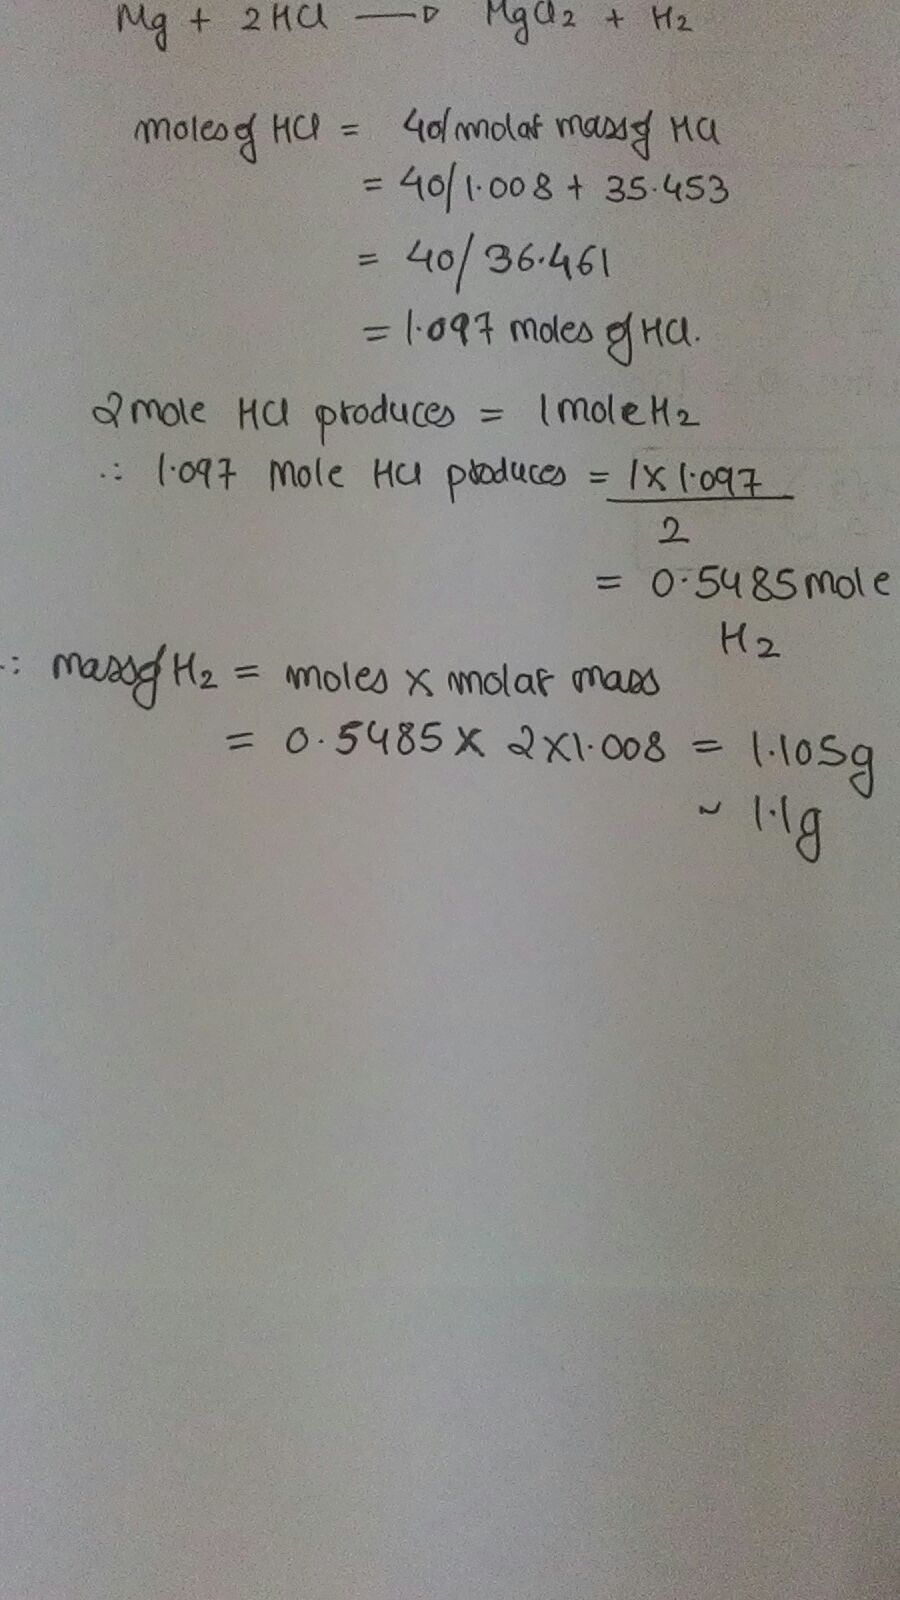 Mg + 2HCl → MgCl2 + H2
moles of HCl = 40/molar mass of HCl
= 40/1.008 + 35.453
= 40/36.461
= 1.097 moles of HCl.
2 mole HCl produces = 1 mole H2
∴ 1.097 mole HCl produces = 1 x 1.097
2
= 0.5485 mole
H2
∴ mass of H2 = moles x molar mass
= 0.5485 x 2x1.008 = 1.105g
~ 1.1g